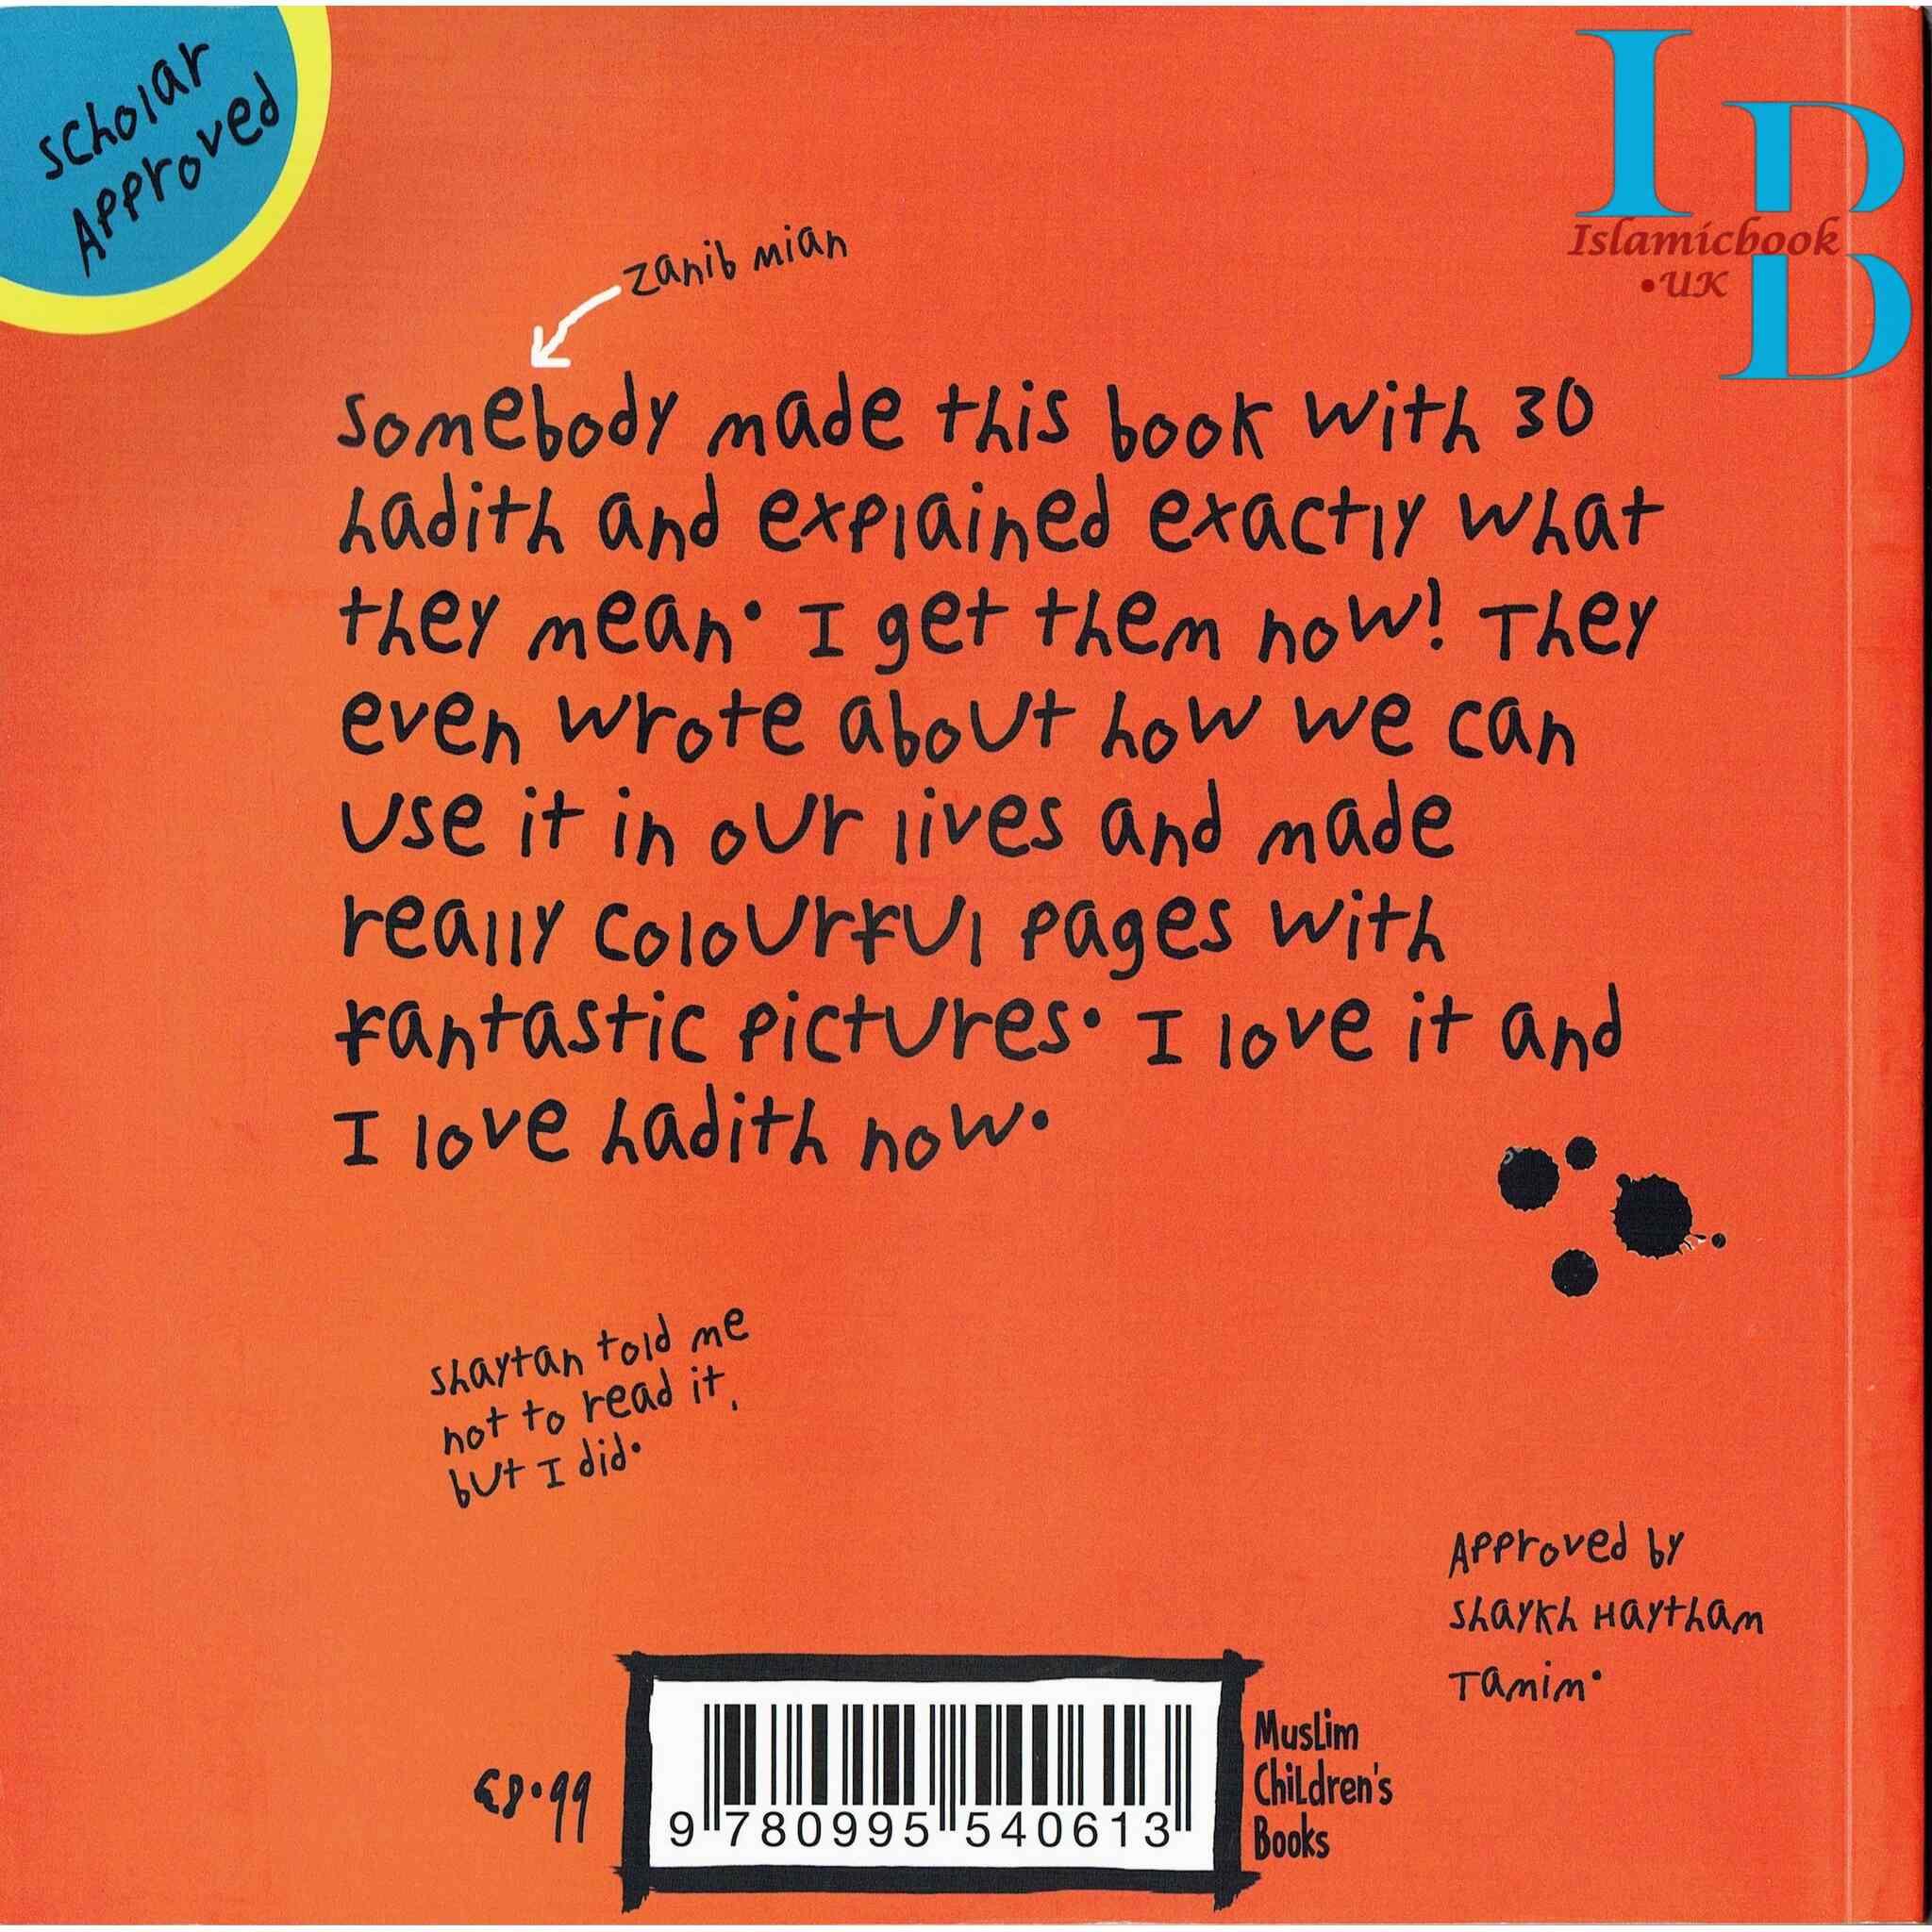 scholar
Approved
I
B
Islamicbook
.UK
D
zanib mian
somebody made this book with 30
hadith and explained exactly what
they mean. I get them now! They
even wrote about how we can
use it in our lives and made
really colourful pages with
fantastic pictures. I love it and
I love hadith now.
shaytan told me
not to read it,
but I did.
Approved by
shaykh Haytham
Tamim.
£8.99
9 780995 540613
Muslim
Children's
Books